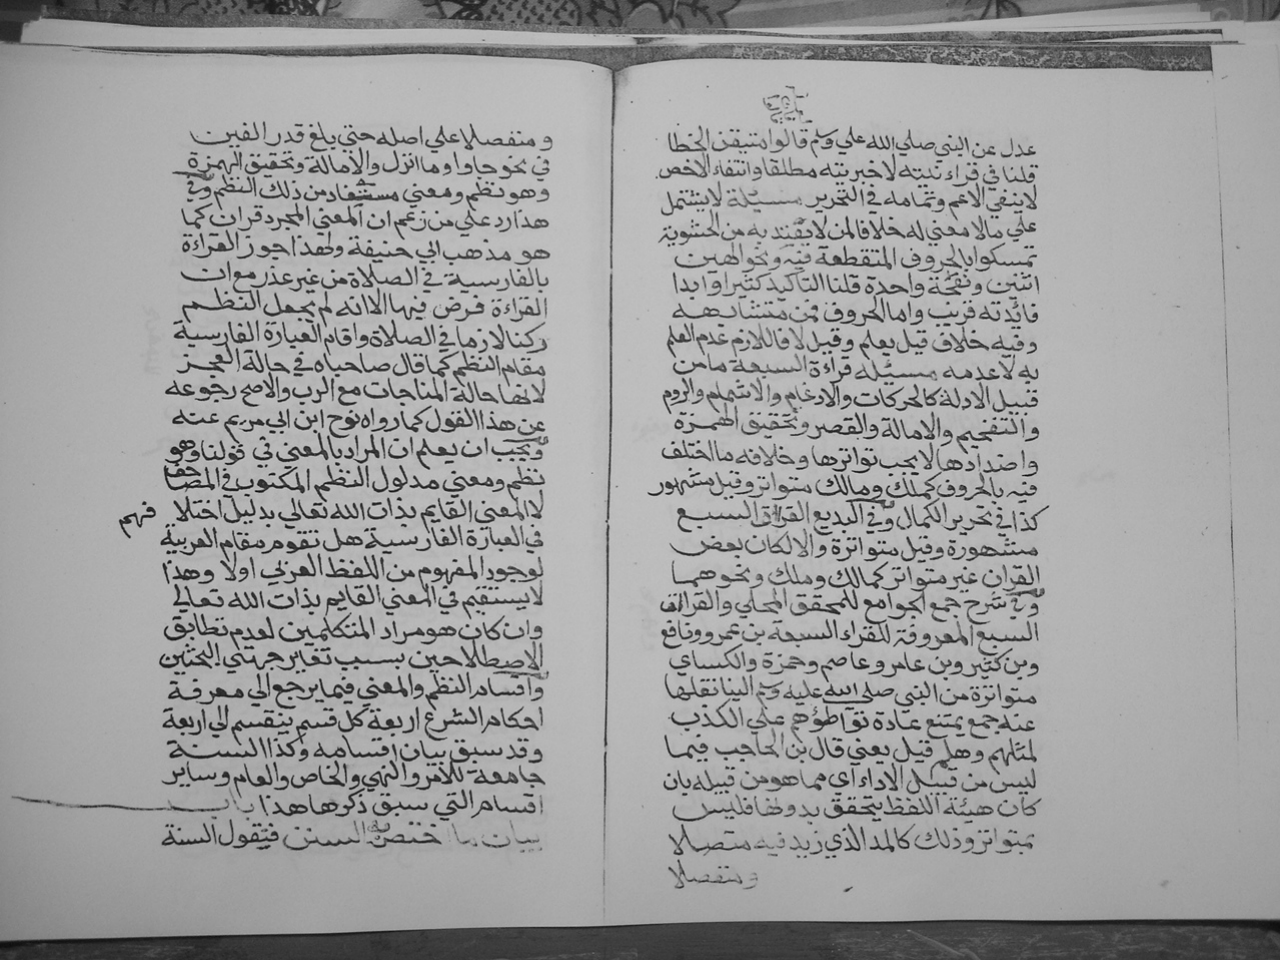 عدل عن النبي صلي الله علي وسلم قالوا متيقن الخطا
قلنا في قراءنيته لا خبريته مطلقا وانتفاء الاخص
لا ينفي الاعم وتمامه في التحرير مسئلة لا يشتمل
علي مالا معني له خلافا لمن لا يعتد به من الحشوية
تمسكوا بالحروف المتقطعة فيه ونحو الهين
اثنين ونفخة واحدة قلنا التاكيد كثيرا وابدا
فائدته قريب واما الحروف فمن متشابهه
وفيه خلاف قيل يعلم وقيل لا فاللازم عدم العلم
به لا عدمه مسئله قراءة السبعة مامن
قبيل الادلة كالحركات والادغام والاشمام والروم
والتفخيم والامالة والقصر وتحقيق الهمزة
واضدادها لا يجب تواترها وخلافه ما اختلف
فيه بالحروف كملك ومالك متواتر وقيل مشهور
كذا في تحرير الكمال وفي البديع القراات السبع
مشهورة وقيل متواترة والا لكان بعض
القران غير متواتر كمالك وملك ونحوهما
وفي شرح جمع الجوامع للمحقق المحلي والقراات
السبع المعروفة للقراء السبعة بن عمرو ونافع
وبن كثير وبن عامر وعاصم وحمزة والكساي
متواترة من النبي صلى الله عليه وسلم الينا نقلها
عنه جمع يمتنع عادة تواطؤهم علي الكذب
لمثلهم وهلم قيل يعني قال بن الحاجب فيما
ليس من قبيل الاداء اي مما هو من قبيله بان
كان هيئة اللفظ يتحقق بدونها فليس
بمتواتر وذلك كالمد الذي زيد فيه متصلا
ومنفصلا
ومنفصلا علي اصله حتي بلغ قدر الفين
في نحو جاوا وما انزل والامالة وتحقيق الهمزة
وهو نظم ومعني مستفاد من ذلك النظم وفي
هذا رد علي من زعم ان المعني المجرد قران كما
هو مذهب ابي حنيفة ولهذا جوز القراءة
بالفارسية في الصلاة من غير عذر مع ان
القراءة فرض فيها الا انه لم يجعل النظم
ركنا لازما في الصلاة واقام العبارة الفارسية
مقام النظم كما قال صاحباه في حالة العجز
لانها حالة المناجات مع الرب والاصح رجوعه
عن هذا القول كما رواه نوح ابن ابي مريم عنه
ويجب ان يعلم ان المراد بالمعني في قولنا وهو
نظم ومعني مدلول النظم المكتوب في المصاحف
لا المعني القايم بذات الله تعالي بدليل اختلا فهم
في العبارة الفارسية هل تقوم مقام العربية
لوجود المفهوم من اللفظ العربي اولا وهذا
لا يستقيم في المعني القايم بذات الله تعالي
وان كان هو مراد المتكلمين لعدم تطابق
الاصطلاحين بسبب تغاير جهتي البحثين
واقسام النظم والمعني فيما يرجع الي معرفة
احكام الشرع اربعة كل قسم ينقسم الي اربعة
وقد سبق بيان اقسامه وكذا السنة
جامعة للامر والنهي والخاص والعام وساير
اقسام التي سبق ذكرها هذا باب
بيان ما اختص به السنن فيقول السنة